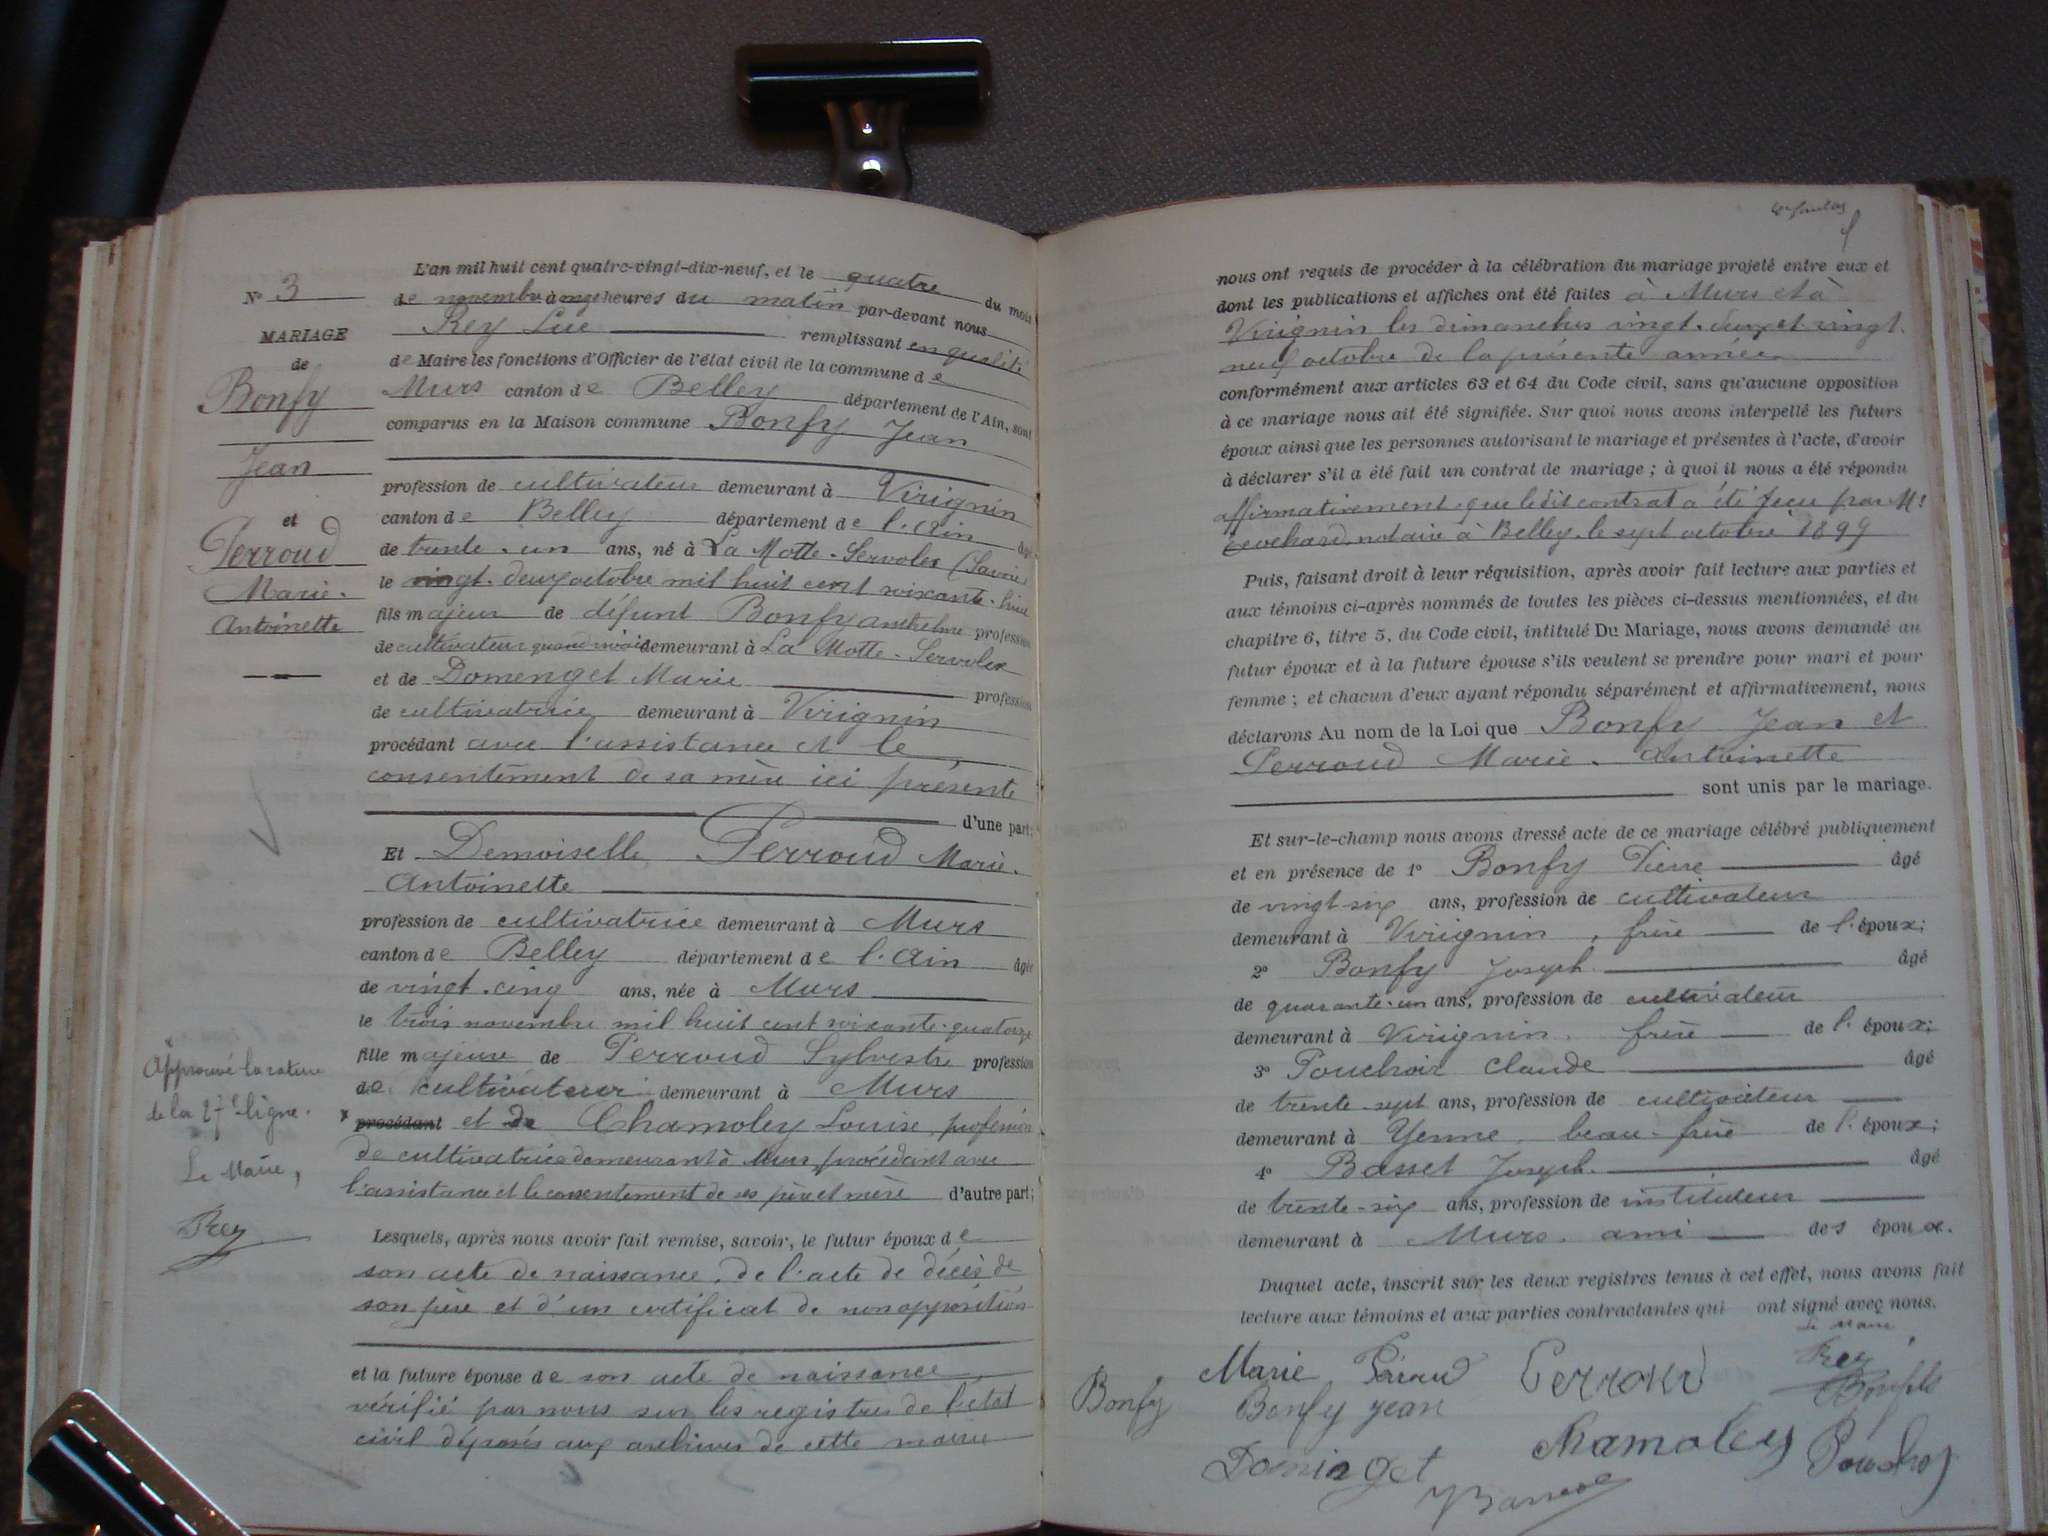 N° 3
MARIAGE
de
Bonfy
Jean
et
Perroud
Marie-
Antoinette
Approuvé la rature
de la 27e ligne.
Le Maire,
Rey
L'an mil huit cent quatre-vingt-dix-neuf, et le quatre du mois
de novembre à onze heures du matin par-devant nous
Rey Luc remplissant en qualité
de Maire les fonctions d'Officier de l'état civil de la commune de
Murs canton de Belley département de l'Ain, sont
comparus en la Maison commune Bonfy Jean
profession de cultivateur demeurant à Virignin
canton de Belley département de l'Ain âgé
de trente-un ans, né à La Motte-Servolex (Savoie)
le vingt-deux octobre mil huit cent soixante-huit
fils majeur de défunt Bonfy Anthelme profession
de cultivateur quand vivait demeurant à La Motte-Servolex
et de Domenget Marie profession
de cultivatrice demeurant à Virignin
procédant avec l'assistance et le
consentement de sa mère ici présente
d'une part;
Et Demoiselle Perroud Marie-
Antoinette
profession de cultivatrice demeurant à Murs
canton de Belley département de l'Ain âgée
de vingt-cinq ans, née à Murs
le trois novembre mil huit cent soixante-quatorze
fille majeure de Perroud Sylvestre profession
de cultivateur demeurant à Murs
x procédant et de Chamoley Louise, profession
de cultivatrice demeurant à Murs procédant avec
l'assistance et le consentement de ses père et mère d'autre part;
Lesquels, après nous avoir fait remise, savoir, le futur époux de
son acte de naissance, de l'acte de décès de
son père et d'un certificat de non opposition
et la future épouse de son acte de naissance,
vérifié par nous sur les registres de l'état
civil déposés aux archives de cette mairie
nous ont requis de procéder à la célébration du mariage projeté entre eux et
dont les publications et affiches ont été faites à Murs et à
Virignin les dimanches vingt-deux et vingt-
neuf octobre de la présente année
conformément aux articles 63 et 64 du Code civil, sans qu'aucune opposition
à ce mariage nous ait été signifiée. Sur quoi nous avons interpellé les futurs
époux ainsi que les personnes autorisant le mariage et présentes à l'acte, d'avoir
à déclarer s'il a été fait un contrat de mariage ; à quoi il nous a été répondu
affirmativement que ledit contrat a été reçu par Me
notaire à Belley, le sept octobre 1899
Puis, faisant droit à leur réquisition, après avoir fait lecture aux parties et
aux témoins ci-après nommés de toutes les pièces ci-dessus mentionnées, et du
chapitre 6, titre 5, du Code civil, intitulé Du Mariage, nous avons demandé au
futur époux et à la future épouse s'ils veulent se prendre pour mari et pour
femme ; et chacun d'eux ayant répondu séparément et affirmativement, nous
déclarons Au nom de la Loi que Bonfy Jean et
Perroud Marie-Antoinette
sont unis par le mariage.
Et sur-le-champ nous avons dressé acte de ce mariage célébré publiquement
et en présence de 1° Bonfy Pierre âgé
de vingt-six ans, profession de cultivateur
demeurant à Virignin, frère de l'époux;
2° Bonfy Joseph âgé
de quarante-un ans, profession de cultivateur
demeurant à Virignin, frère de l'époux;
3° Pouchoir Claude âgé
de trente-sept ans, profession de cultivateur
demeurant à Yenne, beau-frère de l'époux;
4° Basset Joseph âgé
de trente-six ans, profession de instituteur
demeurant à Murs, ami des époux.
Duquel acte, inscrit sur les deux registres tenus à cet effet, nous avons fait
lecture aux témoins et aux parties contractantes qui ont signé avec nous.
Le Maire,
Rey
Marie Perroud Perroud
Bonfy Bonfy Jean
Chamoley
Dominget